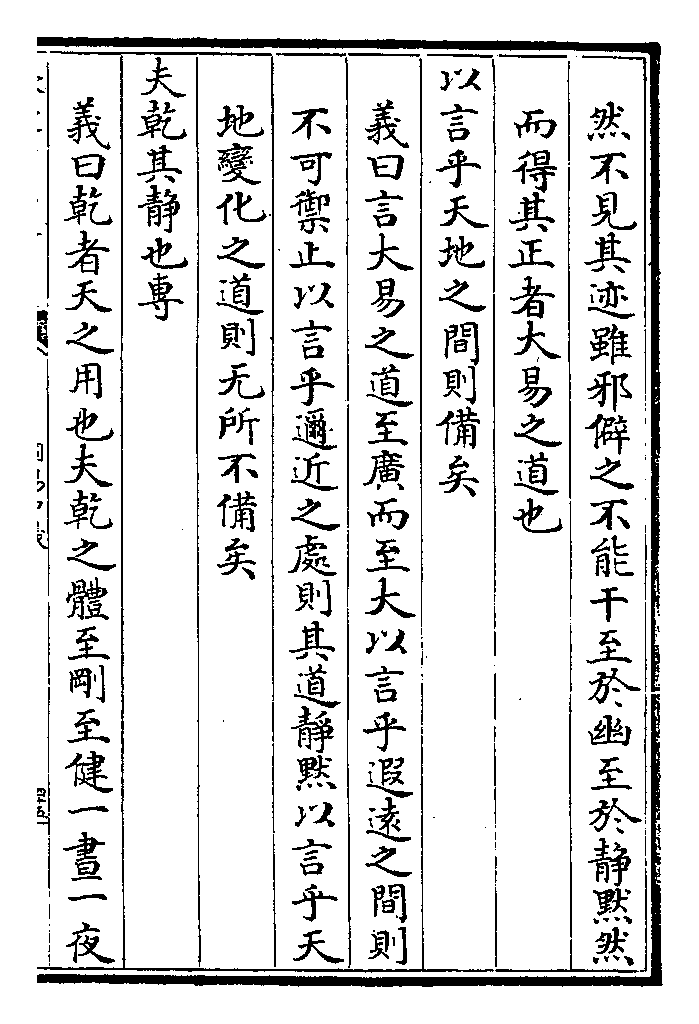 然不見其迹雖邪僻之不能干至於幽至於静黙然
而得其正者大易之道也
以言乎天地之間則備矣
義曰言大易之道至廣而至大以言乎遐遠之間則
不可禦止以言乎邇近之處則其道静黙以言乎天
地變化之道則无所不備矣
夫乾其静也專
義曰乾者天之用也夫乾之體至剛至健一晝一夜